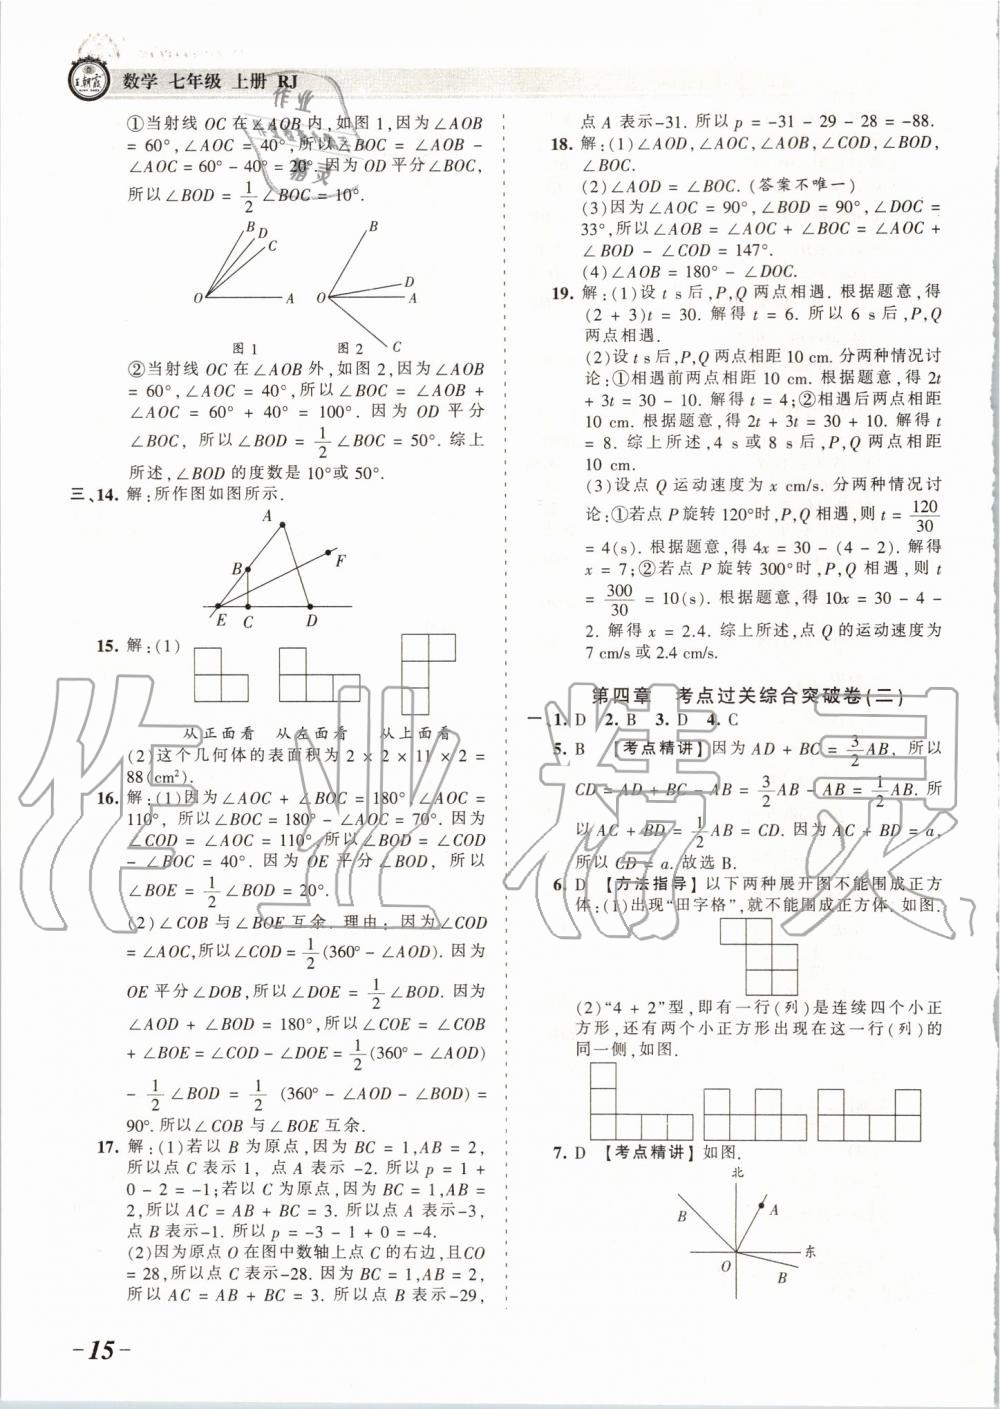 王朝霞
数学 七年级 上册 RJ
①当射线 OC 在∠AOB 内,如图 1,因为∠AOB
= 60°,∠AOC = 40°,所以∠BOC = ∠AOB -
∠AOC = 60° - 40° = 20°. 因为 OD 平分∠BOC,
所以∠BOD = 1/2 ∠BOC = 10°.
B
D
C
O
A
图 1
B
D
A
O
C
图 2
②当射线 OC 在∠AOB 外,如图 2,因为∠AOB
= 60°,∠AOC = 40°,所以∠BOC = ∠AOB +
∠AOC = 60° + 40° = 100°. 因为 OD 平分
∠BOC, 所以∠BOD = 1/2 ∠BOC = 50°. 综上
所述,∠BOD 的度数是 10°或 50°.
三、14. 解:所作图如图所示.
A
B
F
E C D
15. 解:(1)
从正面看 从左面看 从上面看
(2)这个几何体的表面积为 2 × 2 × 11 × 2 =
88(cm²).
16. 解:(1)因为∠AOC + ∠BOC = 180°,∠AOC =
110°, 所以∠BOC = 180° - ∠AOC = 70°. 因为
∠COD = ∠AOC = 110°,所以∠BOD = ∠COD
- ∠BOC = 40°. 因为 OE 平分∠BOD, 所以
∠BOE = 1/2 ∠BOD = 20°.
(2)∠COB 与∠BOE 互余. 理由: 因为∠COD
= ∠AOC,所以∠COD = 1/2 (360° - ∠AOD). 因为
OE 平分∠DOB,所以∠DOE = 1/2 ∠BOD. 因为
∠AOD + ∠BOD = 180°,所以∠COE = ∠COB
+ ∠BOE = ∠COD - ∠DOE = 1/2 (360° - ∠AOD)
- 1/2 ∠BOD = 1/2 (360° - ∠AOD - ∠BOD) =
90°. 所以∠COB 与∠BOE 互余.
17. 解:(1)若以 B 为原点,因为 BC = 1,AB = 2,
所以点 C 表示 1, 点 A 表示 -2. 所以 p = 1 +
0 - 2 = -1;若以 C 为原点,因为 BC = 1,AB =
2,所以 AC = AB + BC = 3. 所以点 A 表示-3,
点 B 表示-1. 所以 p = -3 - 1 + 0 = -4.
(2)因为原点 O 在图中数轴上点 C 的右边,且CO
= 28,所以点 C 表示-28. 因为 BC = 1,AB = 2,
所以 AC = AB + BC = 3. 所以点 B 表示-29,
点 A 表示-31. 所以 p = -31 - 29 - 28 = -88.
18. 解:(1)∠AOD,∠AOC,∠AOB,∠COD,∠BOD,
∠BOC.
(2)∠AOD = ∠BOC. (答案不唯一)
(3)因为∠AOC = 90°,∠BOD = 90°,∠DOC =
33°,所以∠AOB = ∠AOC + ∠BOC = ∠AOC +
∠BOD - ∠COD = 147°.
(4)∠AOB = 180° - ∠DOC.
19. 解:(1)设 t s 后,P,Q 两点相遇. 根据题意,得
(2 + 3)t = 30. 解得 t = 6. 所以 6 s 后,P,Q
两点相遇.
(2)设 t s 后,P,Q 两点相距 10 cm. 分两种情况讨
论:①相遇前两点相距 10 cm. 根据题意,得 2t
+ 3t = 30 - 10. 解得 t = 4;②相遇后两点相距
10 cm. 根据题意,得 2t + 3t = 30 + 10. 解得 t
= 8. 综上所述,4 s 或 8 s 后,P,Q 两点相距
10 cm.
(3)设点 Q 运动速度为 x cm/s. 分两种情况讨
论:①若点 P 旋转 120°时,P,Q 相遇,则 t = 120/30
= 4(s). 根据题意,得 4x = 30 - (4 - 2). 解得
x = 7;②若点 P 旋转 300°时,P,Q 相遇, 则 t
= 300/30 = 10(s). 根据题意,得 10x = 30 - 4 -
2. 解得 x = 2.4. 综上所述,点 Q 的运动速度为
7 cm/s 或 2.4 cm/s.
第四章 考点过关综合突破卷(二)
一、1. D 2. B 3. D 4. C
5. B 【考点精讲】因为 AD + BC = 3/2 AB, 所以
CD = AD + BC - AB = 3/2 AB - AB = 1/2 AB. 所
以 AC + BD = 1/2 AB = CD. 因为 AC + BD = a,
所以 CD = a. 故选 B.
6. D 【方法指导】以下两种展开图不能围成正方
体:(1)出现“田字格”,就不能围成正方体. 如图.
(2)“4 + 2”型,即有一行(列)是连续四个小正
方形,还有两个小正方形出现在这一行(列)的
同一侧,如图.
7. D 【考点精讲】如图.
北
B
A
东
O
B
-15-
作业精灵